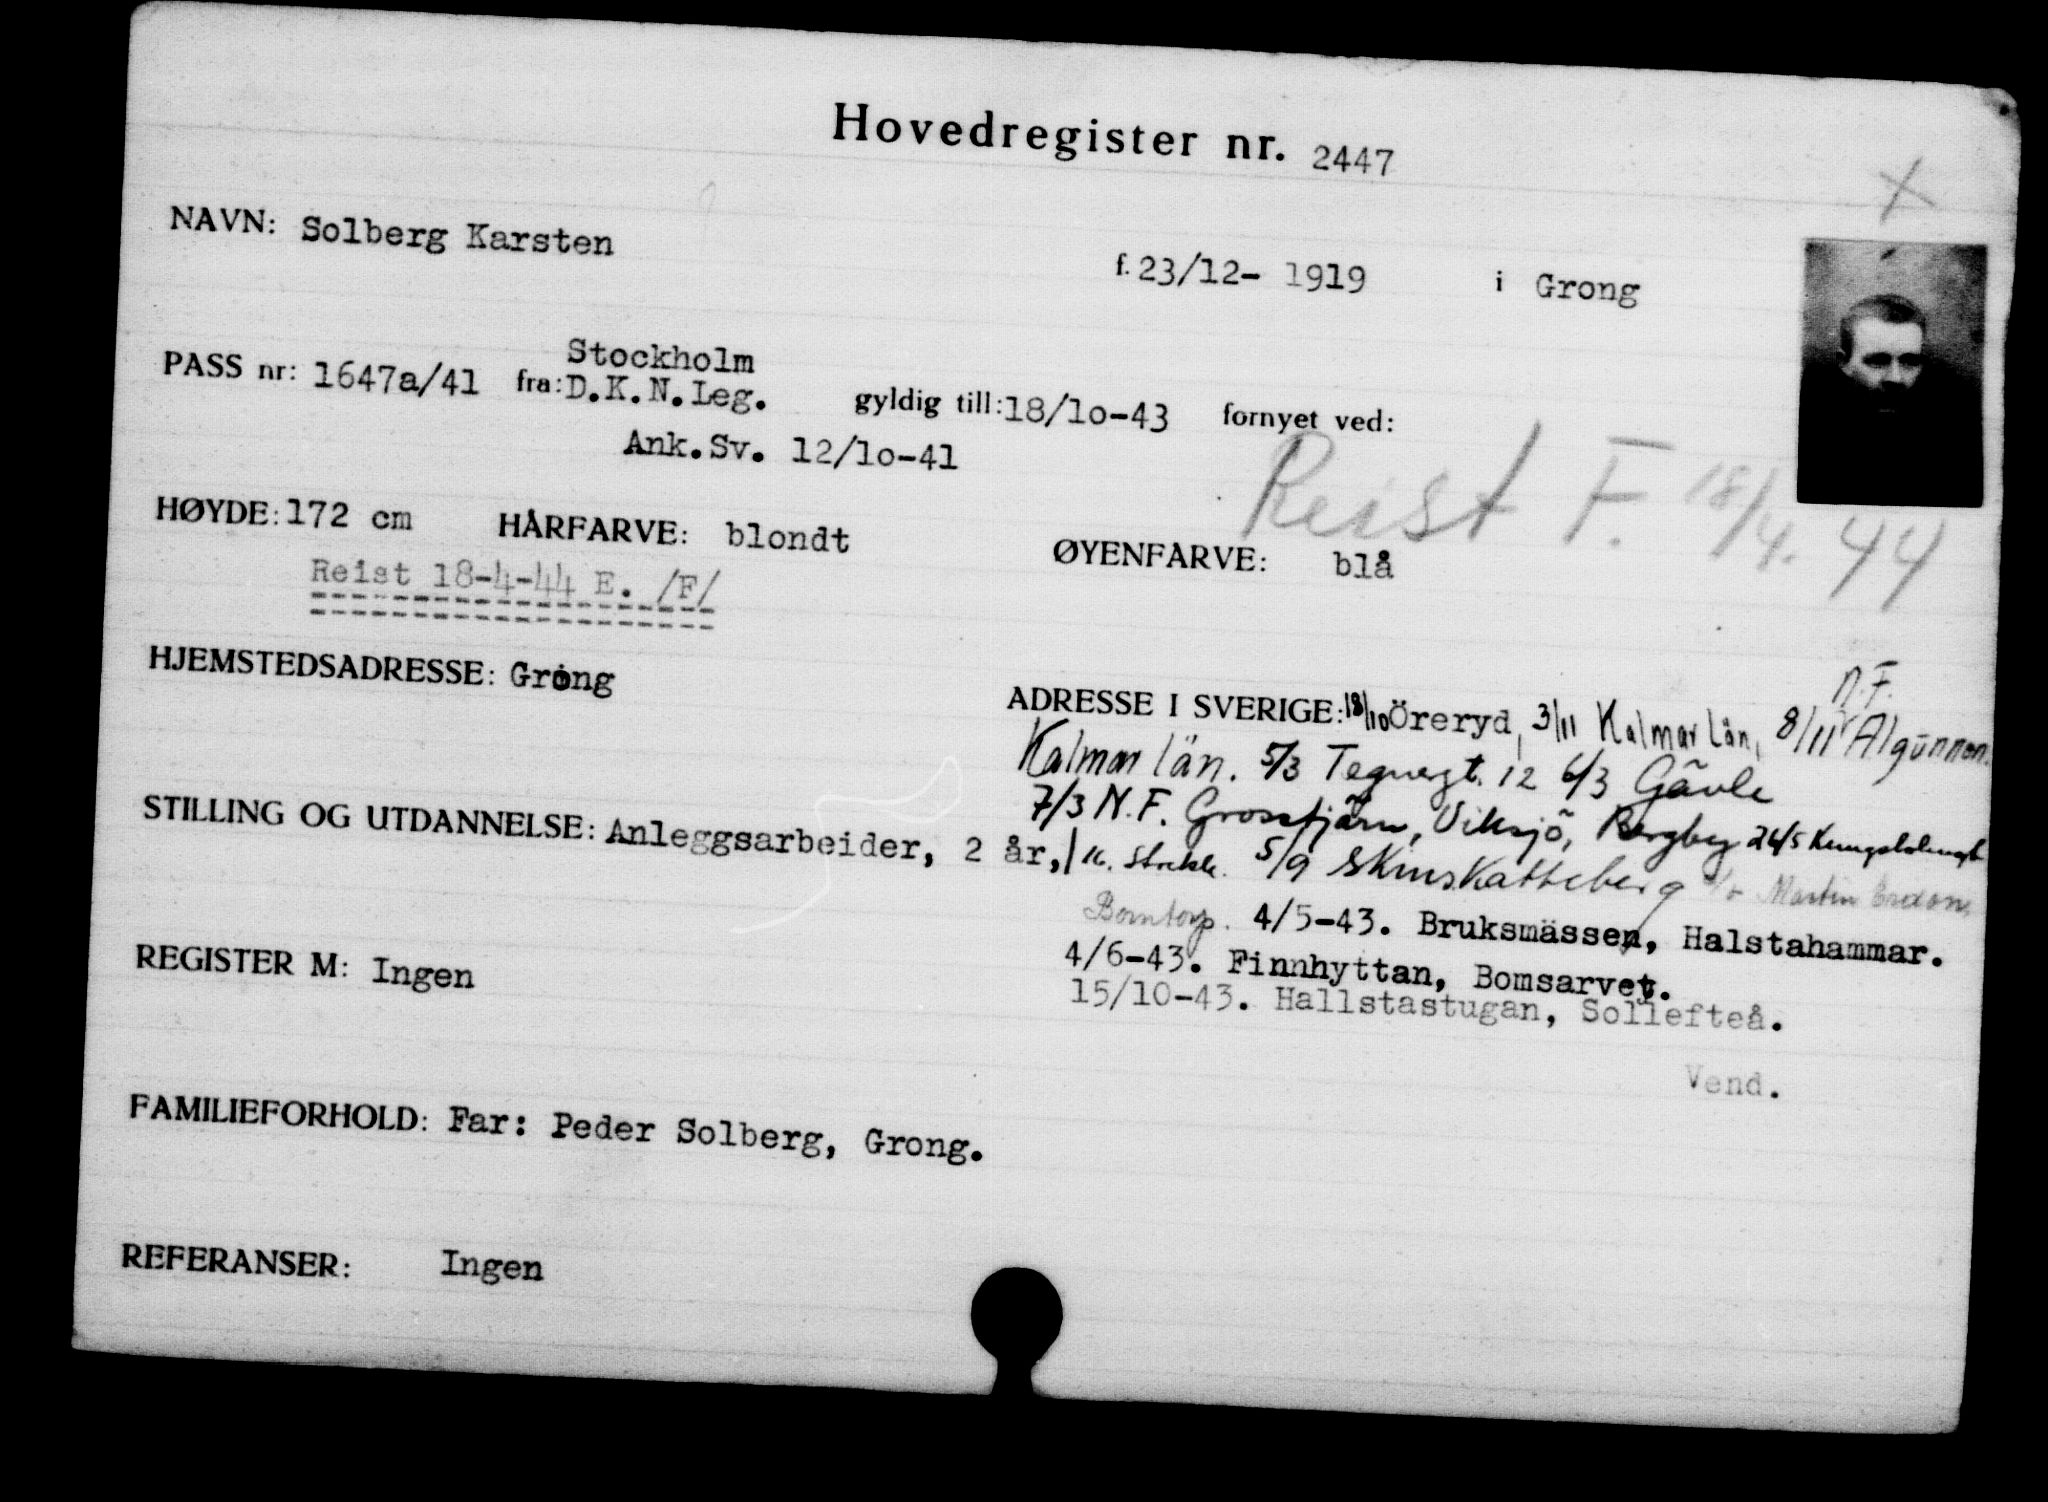 Hovedregister nr. 2447
NAVN: Solberg Karsten f. 23/12- 1919 i Grong
PASS nr: 1647a/41 fra: Stockholm D.K.N.Leg. gyldig till: 18/1o-43 fornyet ved:
Ank.Sv. 12/1o-41
Reist F. 18/4. 44
HØYDE: 172 cm HÅRFARVE: blondt ØYENFARVE: blå
Reist 18-4-44 E. /F/
HJEMSTEDSADRESSE: Grong
N.F.
ADRESSE I SVERIGE: 18/10 Öreryd, 3/11 Kalmar län, 8/11 Algunnen
Kalmar län. 5/3 Tegnergt. 12 6/3 Gävle
7/3 N.F. Grosstjärn, Viksjö, Bergby 26/5
STILLING OG UTDANNELSE: Anleggsarbeider, 2 år,
5/9 Skinskatteberg c/o Martin
Bomtorp. 4/5-43. Bruksmässen, Halstahammar.
4/6-43. Finnhyttan, Bomsarvet.
15/10-43. Hallstastugan, Sollefteå.
REGISTER M: Ingen
Vend.
FAMILIEFORHOLD: Far: Peder Solberg, Grong.
REFERANSER: Ingen